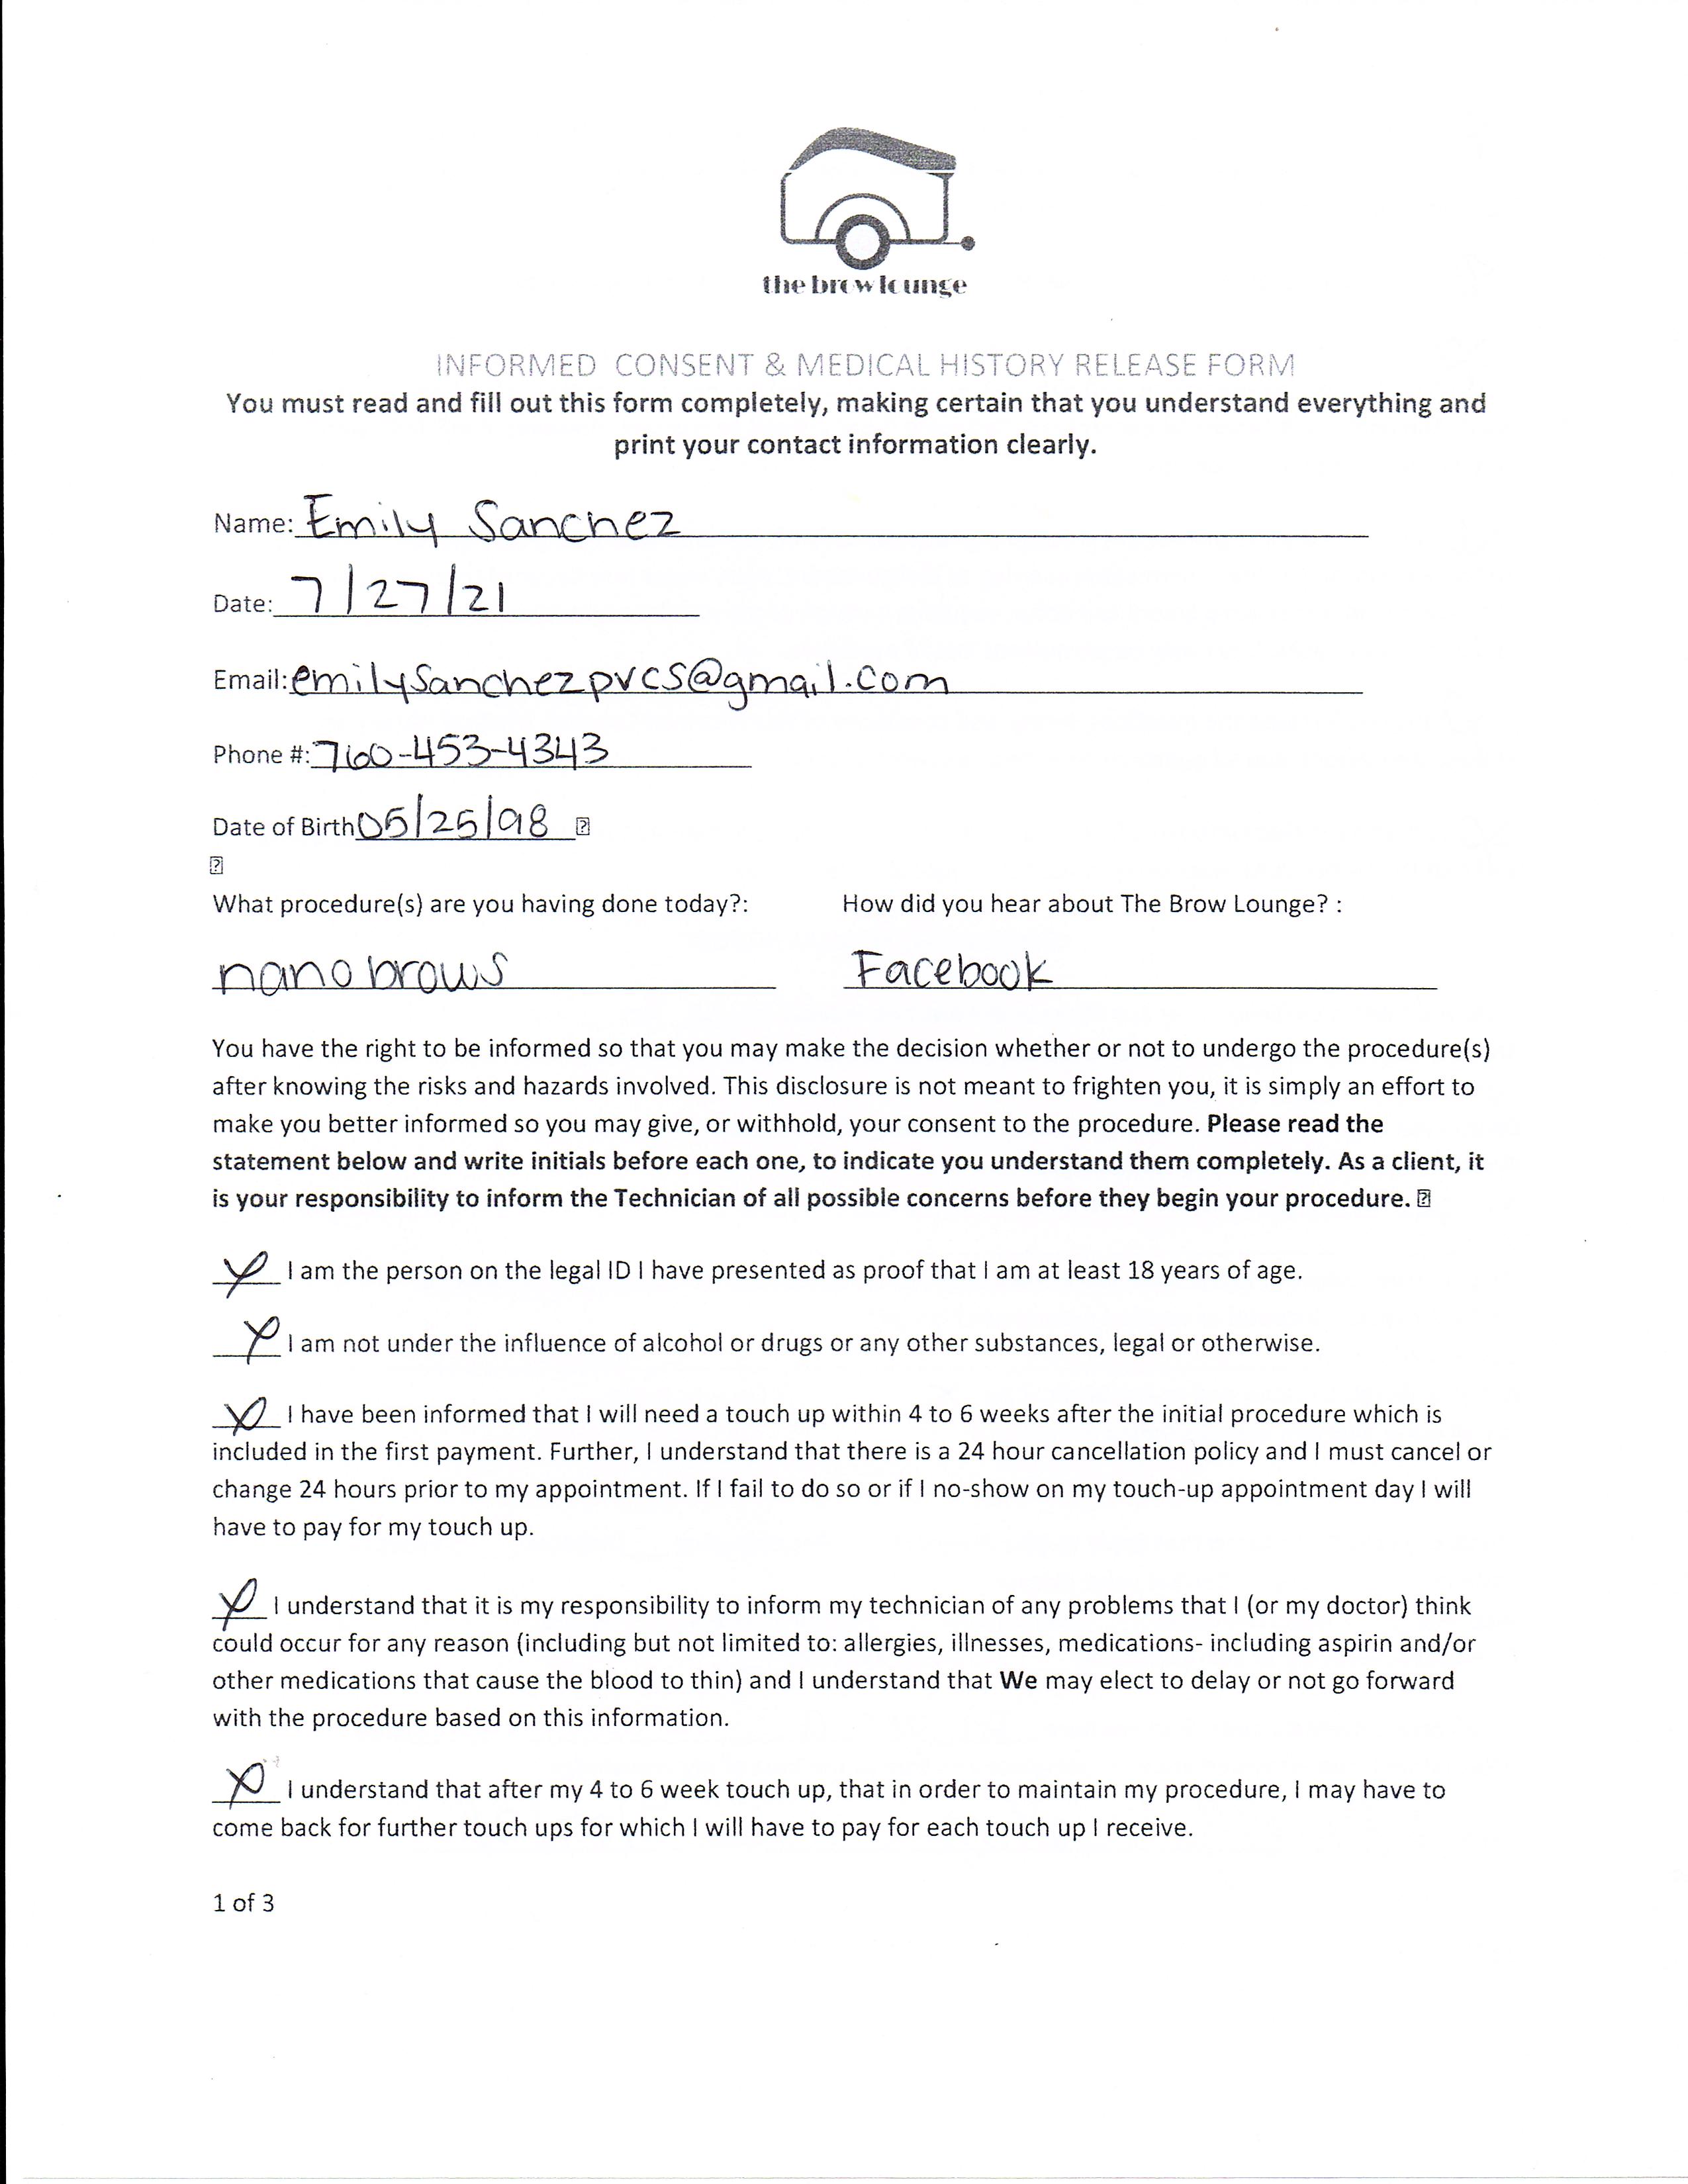 the brow lounge
INFORMED CONSENT & MEDICAL HISTORY RELEASE FORM
You must read and fill out this form completely, making certain that you understand everything and
print your contact information clearly.
Name: Emily Sanchez
Date: 7/27/21
Email: emilysanchezpvcs@gmail.com
Phone #: 760-453-4343
Date of Birth 05/25/98
What procedure(s) are you having done today?: How did you hear about The Brow Lounge? :
nano brows Facebook
You have the right to be informed so that you may make the decision whether or not to undergo the procedure(s)
after knowing the risks and hazards involved. This disclosure is not meant to frighten you, it is simply an effort to
make you better informed so you may give, or withhold, your consent to the procedure. Please read the
statement below and write initials before each one, to indicate you understand them completely. As a client, it
is your responsibility to inform the Technician of all possible concerns before they begin your procedure.
I am the person on the legal ID I have presented as proof that I am at least 18 years of age.
I am not under the influence of alcohol or drugs or any other substances, legal or otherwise.
I have been informed that I will need a touch up within 4 to 6 weeks after the initial procedure which is
included in the first payment. Further, I understand that there is a 24 hour cancellation policy and I must cancel or
change 24 hours prior to my appointment. If I fail to do so or if I no-show on my touch-up appointment day I will
have to pay for my touch up.
I understand that it is my responsibility to inform my technician of any problems that I (or my doctor) think
could occur for any reason (including but not limited to: allergies, illnesses, medications- including aspirin and/or
other medications that cause the blood to thin) and I understand that We may elect to delay or not go forward
with the procedure based on this information.
I understand that after my 4 to 6 week touch up, that in order to maintain my procedure, I may have to
come back for further touch ups for which I will have to pay for each touch up I receive.
1 of 3